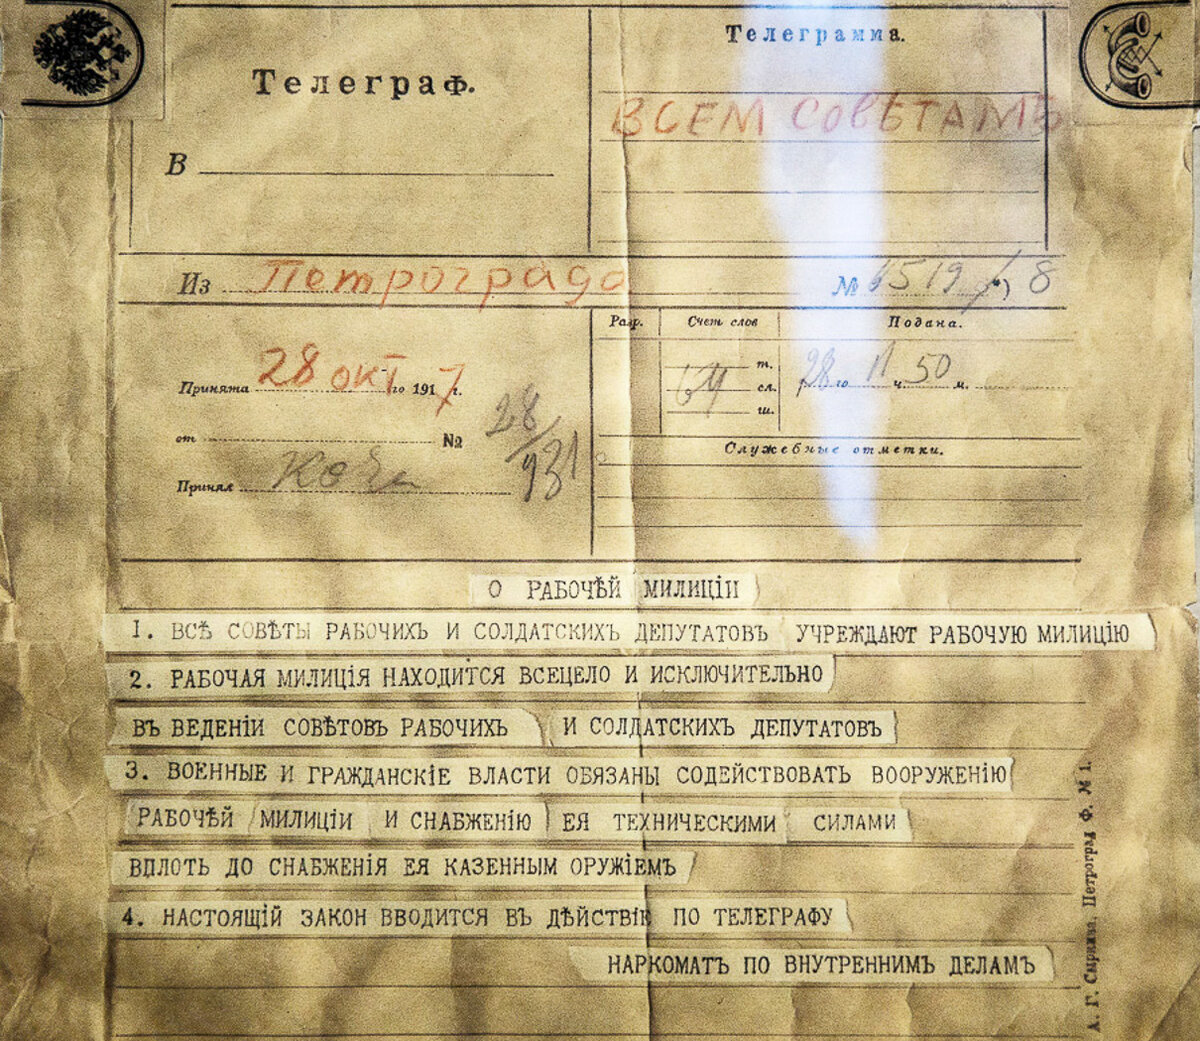 Телеграф.
Телеграмма.
ВСЕМ СОВѢТАМЪ
В
Из Петрограда
№ 6519 / 8
Принята 28 окт го 1917 г.
от № 28/931
Принял
Разр. Счет слов Подана.
64 т. сл. ш.
28 го 11 ч. 50 м.
Служебные отметки.
О РАБОЧѢЙ МИЛИЦІИ
1. ВСѢ СОВѢТЫ РАБОЧИХЪ И СОЛДАТСКИХЪ ДЕПУТАТОВЪ УЧРЕЖДАЮТ РАБОЧУЮ МИЛИЦІЮ
2. РАБОЧАЯ МИЛИЦІЯ НАХОДИТСЯ ВСЕЦЕЛО И ИСКЛЮЧИТЕЛЬНО
ВЪ ВЕДЕНІИ СОВѢТОВЪ РАБОЧИХЪ И СОЛДАТСКИХЪ ДЕПУТАТОВЪ
3. ВОЕННЫЕ И ГРАЖДАНСКІЕ ВЛАСТИ ОБЯЗАНЫ СОДЕЙСТВОВАТЬ ВООРУЖЕНІЮ
РАБОЧѢЙ МИЛИЦІИ И СНАБЖЕНІЮ ЕЯ ТЕХНИЧЕСКИМИ СИЛАМИ
ВПЛОТЬ ДО СНАБЖЕНІЯ ЕЯ КАЗЕННЫМ ОРУЖІЕМЪ
4. НАСТОЯЩІЙ ЗАКОН ВВОДИТСЯ ВЪ ДѢЙСТВІЕ ПО ТЕЛЕГРАФУ
НАРКОМАТЪ ПО ВНУТРЕННИМЪ ДЕЛАМЪ
А. Г. Сыркина. Петроград Ф. М 1.